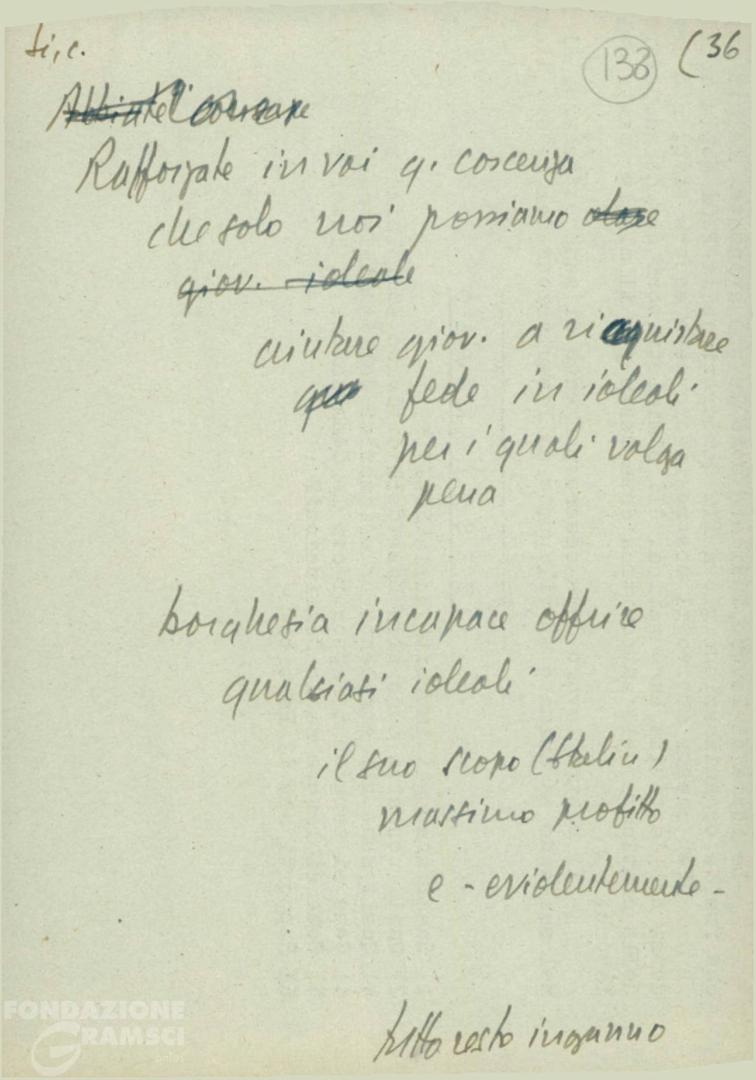 si, c.
133 (36
Abbiate coscenza
Rafforzate in voi q. coscenza
che solo noi possiamo dare
giov. ideale
aiutare giov. a riaquistare
qua fede in ideali
per i quali valga
pena
borghesia incapace offrire
qualsiasi ideali
il suo scopo (Stalin)
massimo profitto
e - evidentemente -
tutto resto inganno
FONDAZIONE
GRAMSCI